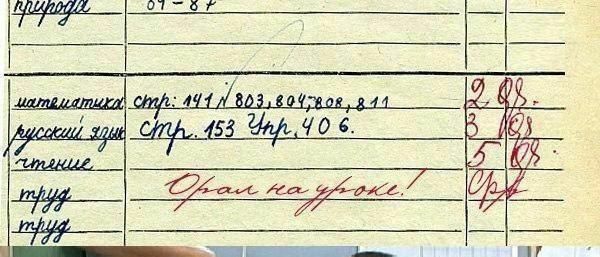 природа 84-87
математика стр: 141 № 803, 804, 808, 811 2
русский язык стр. 153 Упр. 406. 3
чтение 5
труд Орал на уроке!
труд